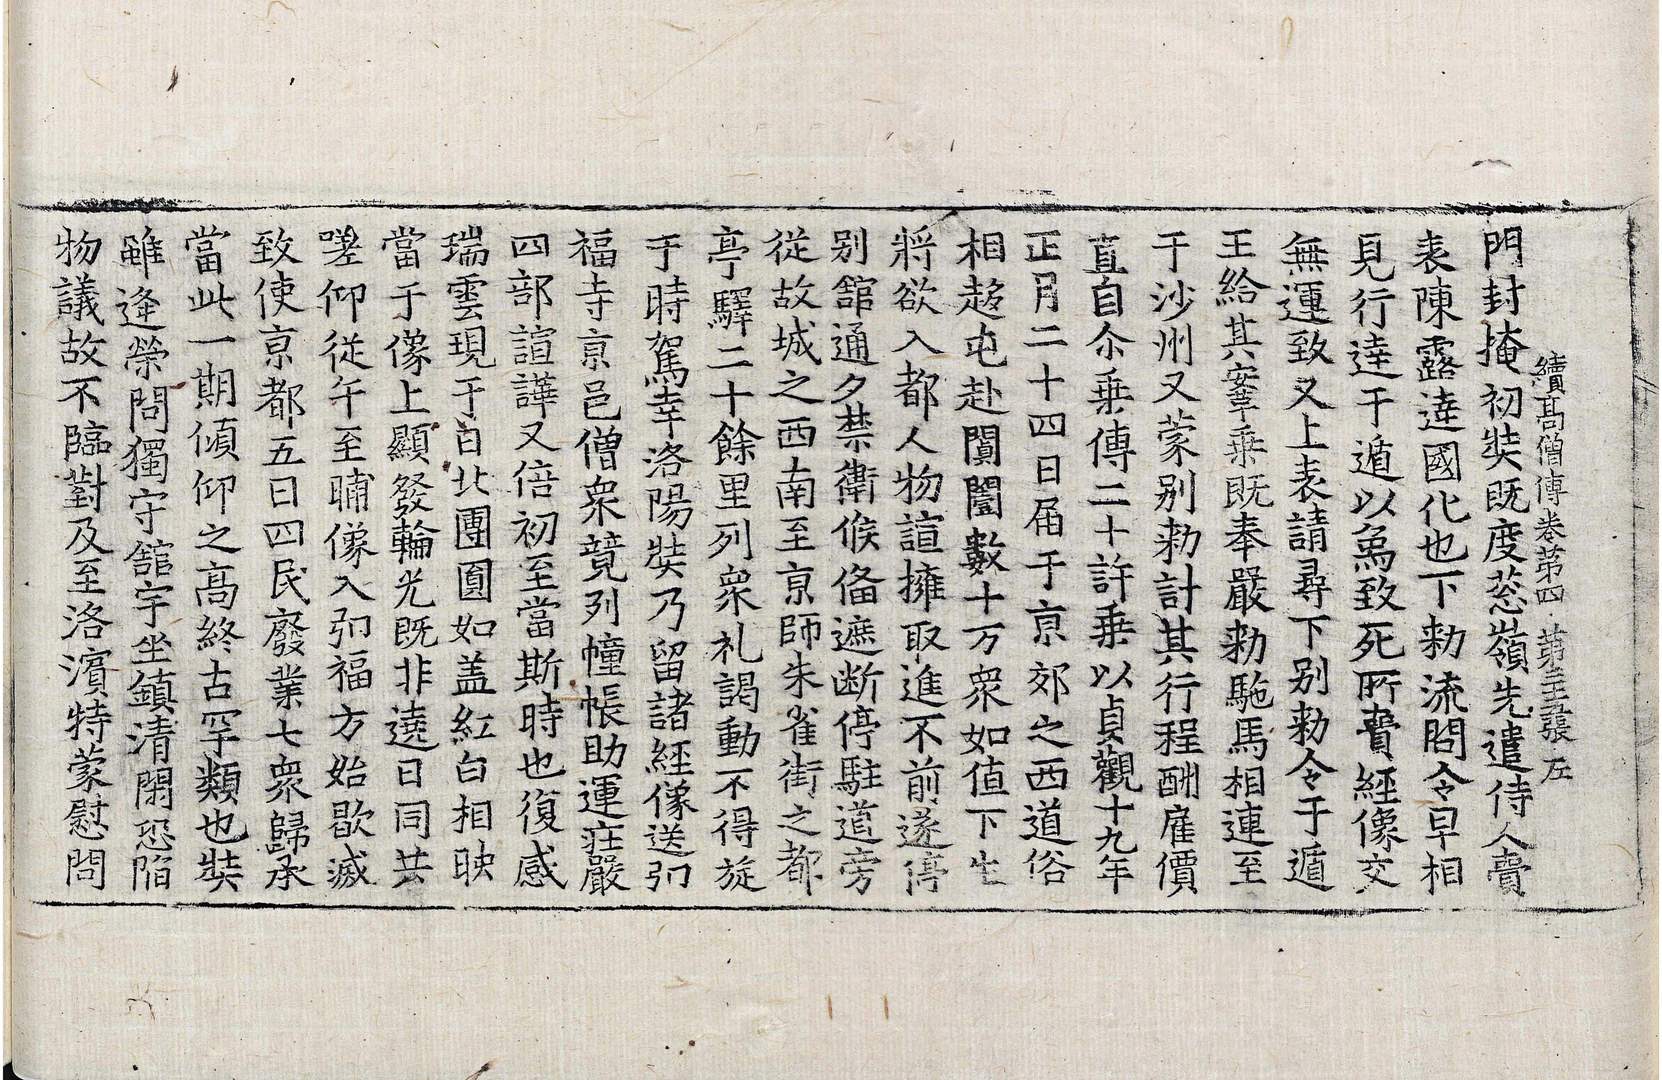 門封掩初奘既度葱嶺先遣侍人賷
續高僧傳卷第四 第 張 左
表陳露達國化也下勑流問令早相
見行達于遁以象致死所賷經像交
無運致又上表請尋下别勑令于遁
王給其鞌乗既奉嚴勑馳馬相連至
于沙州又蒙别勑計其行程酬雇價
直自尒乗傳二十許乗以貞觀十九年
正月二十四日届于京郊之西道俗
相趍屯赴闐闥數十万衆如值下生
將欲入都人物諠擁取進不前遂停
别舘通夕禁衛候俻遮断停駐道旁
從故城之西南至京師朱雀街之都
亭驛二十餘里列衆礼謁動不得旋
于時駕幸洛陽奘乃留諸經像送弘
福寺京邑僧衆競列幢帳助運莊嚴
四部諠譁又倍初至當斯時也復感
瑞雲現于日北團圓如盖紅白相映
當于像上顯發輪光既非遶日同共
嗟仰從午至晡像入弘福方始歇滅
致使京都五日四民廢業七衆歸承
當此一期傾仰之高終古罕類也奘
雖逢榮問獨守舘宇坐鎮清閑恐陷
物議故不臨對及至洛濱特蒙慰問